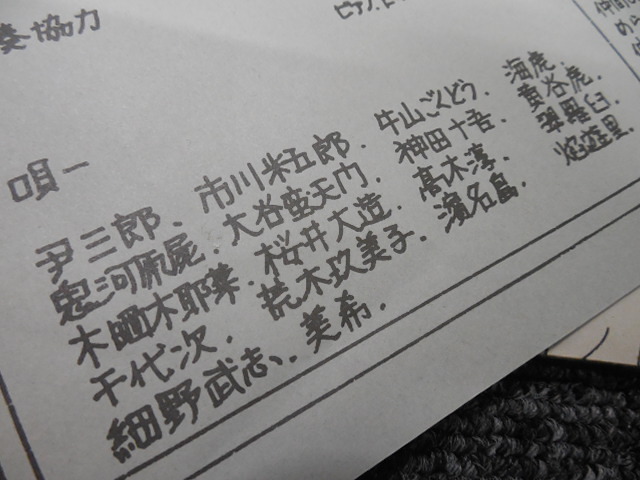 奏協力
唄一
尹三郎、市川米五郎、牛山ごくどう、海虎、
鬼河原屍、大谷蛮天門、神田十吾、黄谷虎、
木曬木耶葉、桜井大造、髙木淳、翠羅臼、
千代次、荒木玖美子、濱名島、焰遊里、
細野武志、美希、